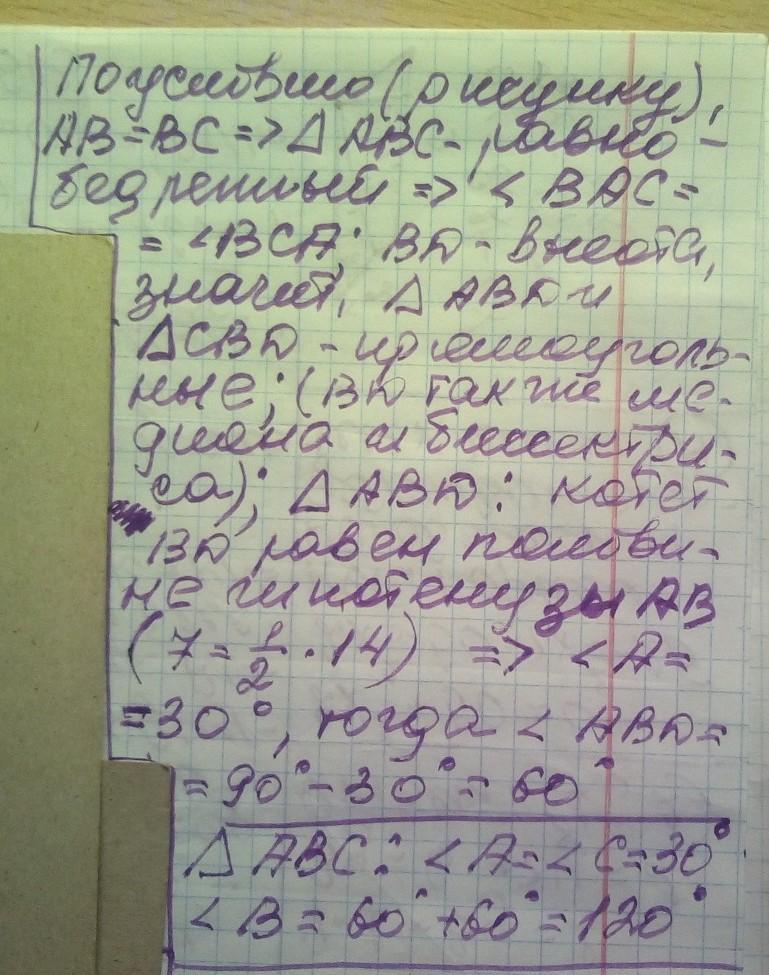 По условию (рисунку),
AB=BC=>△ABC-равно-
бедренный => <BAC=
= <BCA; BD-высота,
значит, △ABD и
△CBD-прямоуголь-
ные; (BD также ме-
диана и биссектри-
са); △ABD: катет
BD равен полови-
не гипотенузы AB
(7=1/2·14) => <A=
=30°, тогда <ABD=
=90°-30°=60°
△ABC: <A=<C=30°
<B=60°+60°=120°